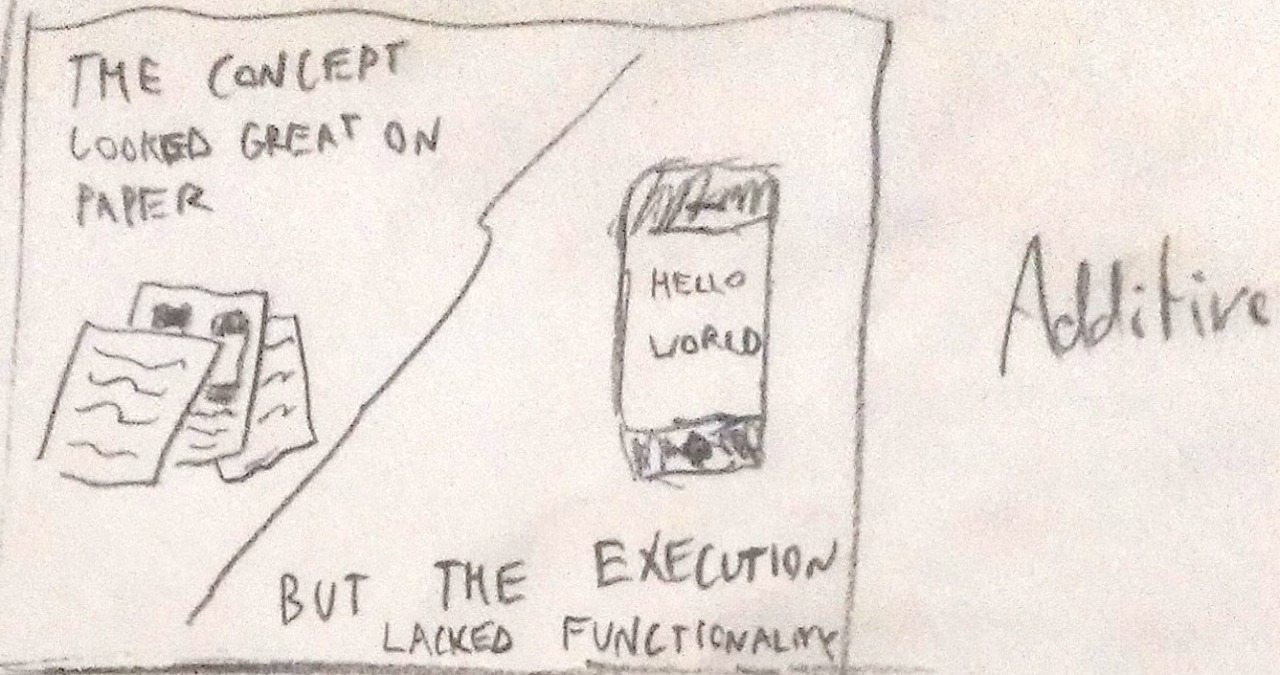 THE CONCEPT
LOOKED GREAT ON
PAPER
HELLO
WORLD
BUT THE EXECUTION
LACKED FUNCTIONALITY
Additive